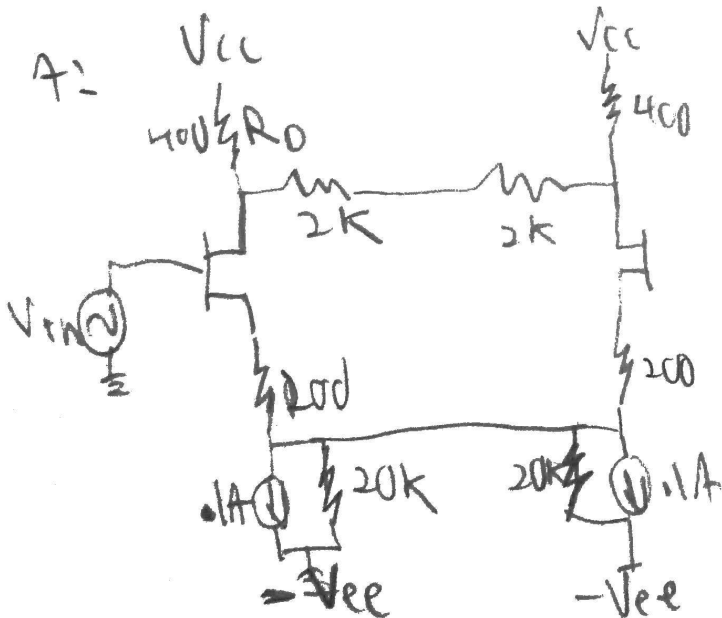 A:
Vcc
Vcc
400
RD
400
2K
2K
Vin
200
200
.1A
20K
20K
.1A
-Vee
-Vee